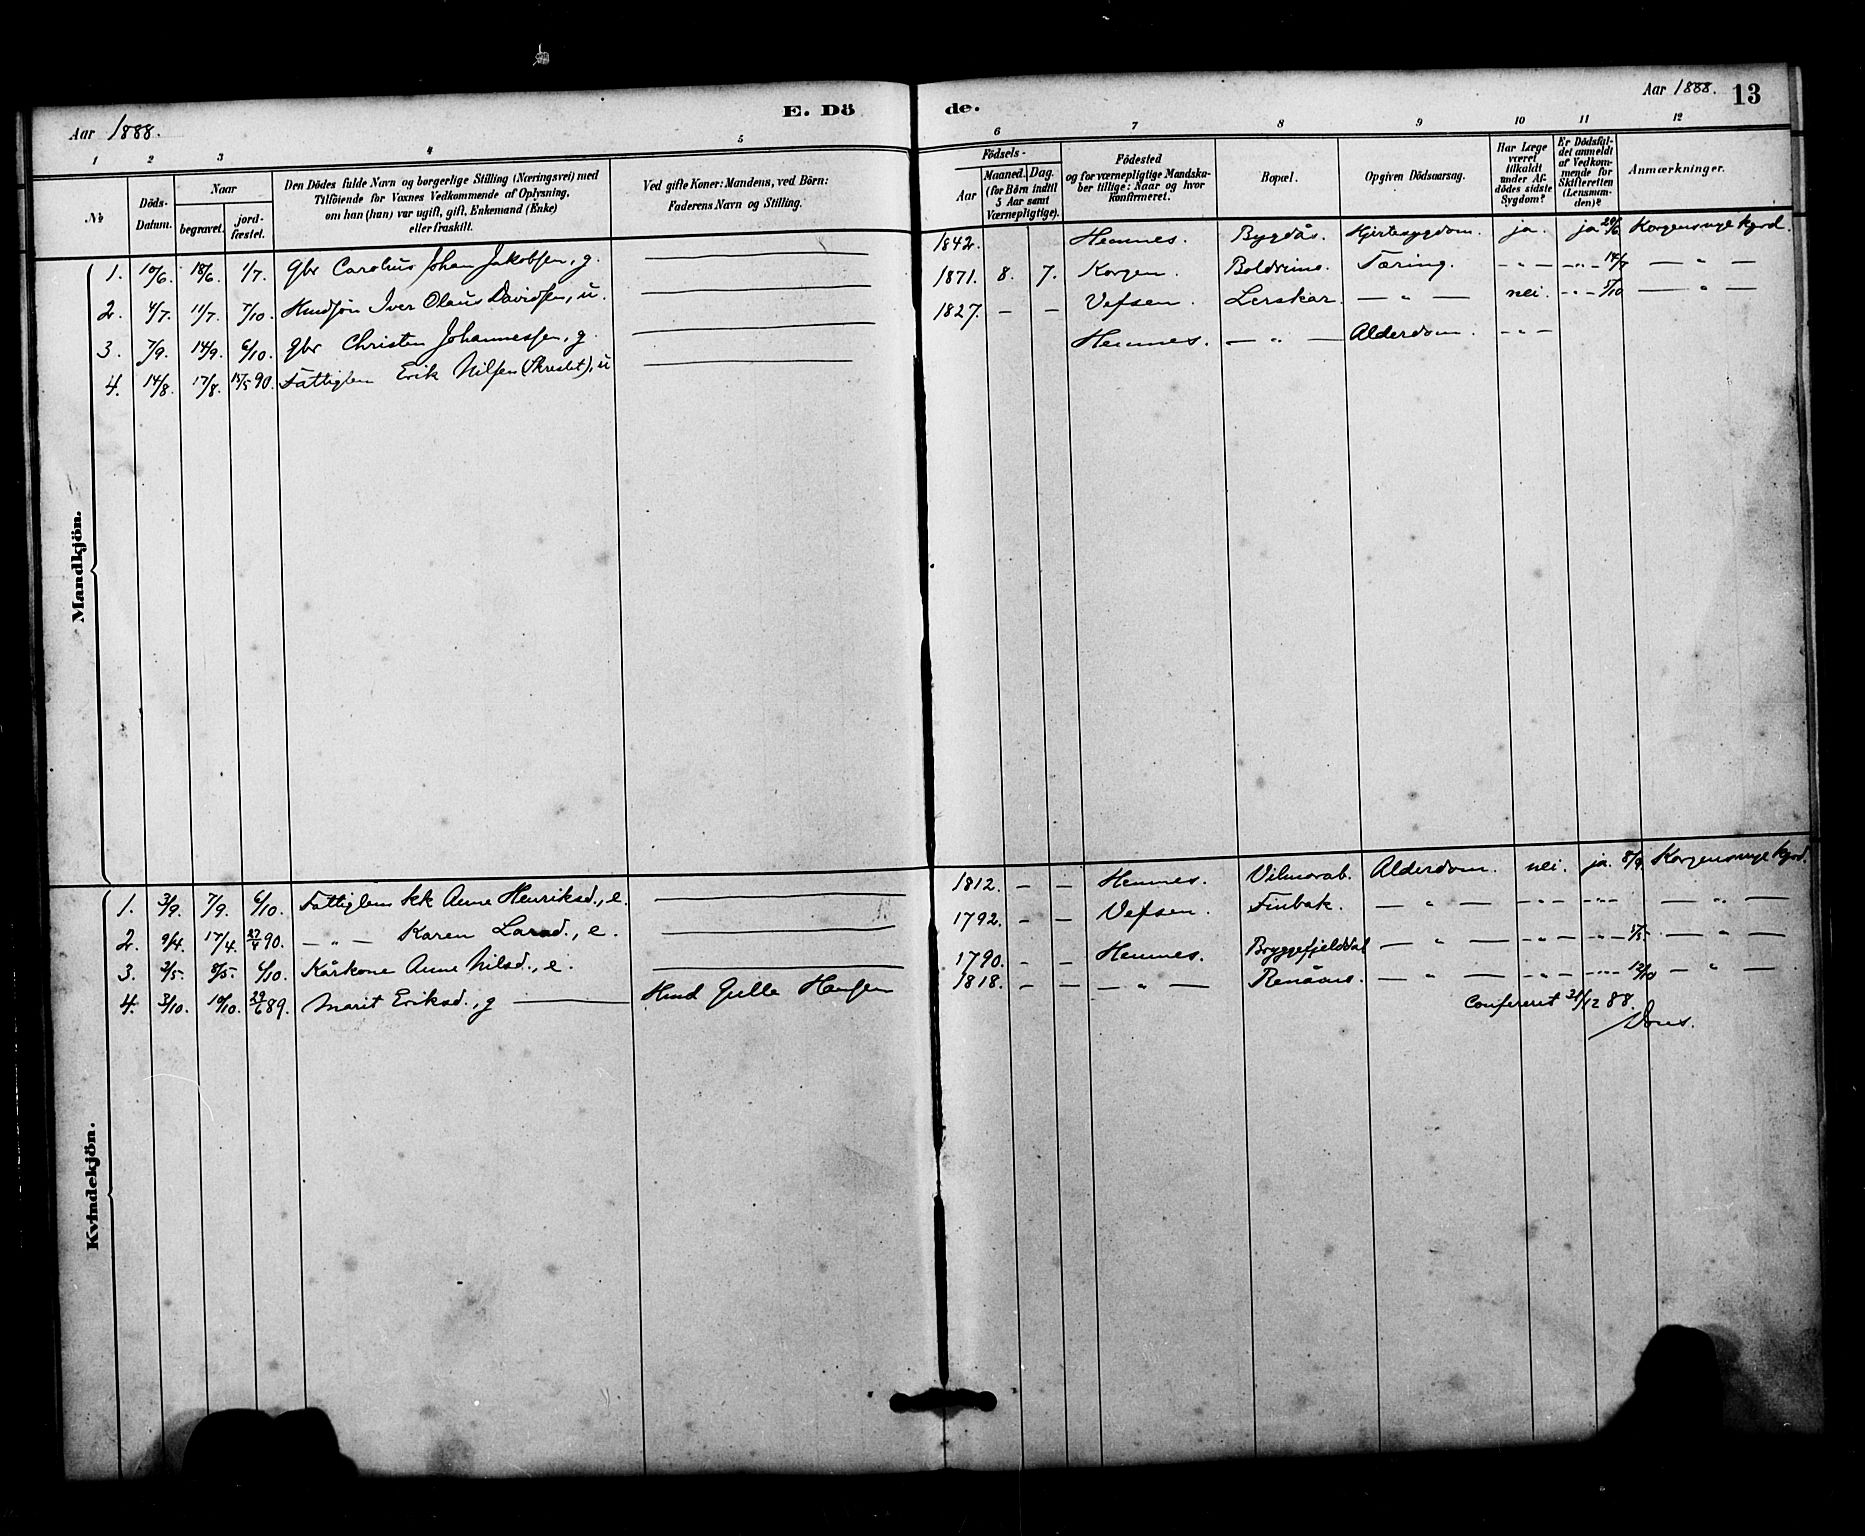 Aar 1888.
E. Dö
de.
Aar 1888. 13
1 2 3 4 5 6 7 8 9 10 11 12
№
Döds-
Datum.
Naar
begravet.
jord-
fæstet.
Den Dödes fulde Navn og borgerlige Stilling (Næringsvei) med
Tilföiende for Voxnes Vedkommende af Oplysning,
om han (hun) var ugift, gift, Enkemand (Enke)
eller fraskilt.
Ved gifte Koner: Mandens, ved Börn:
Faderens Navn og Stilling.
Födsels-
Aar
Maaned. Dag.
(for Börn indtil
5 Aar samt
Værnepligtige).
Födested
og for værnepligtige Mandska-
ber tillige: Naar og hvor
konfirmeret.
Bopæl.
Opgiven Dödsaarsag.
Har Læge
været
tilkaldt
under Af-
dödes sidste
Sygdom?
Er Dödsfal-
det anmeldt
af Vedkom-
mende for
Skifteretten
(Lensman-
den)?
Anmærkninger.
Mandkjön.
1. 10/6. 18/6. 1/7. Gbr Carolius Johan Jakobsen, g. 1842. Hemnes. Bygdås. Hjertesygdom. ja. ja 20/6 Korgens nye kgrd.
2. 4/7. 11/7. 7/10. Husdsøn Iver Olaus Davidsen, u. 1871. 8. 7. Korgen. Tæring. — " — — " — 14/7 — " —
3. 7/9. 14/9. 6/10. Gbr Christen Johannessen, g. 1827. — — Vefsen. Lerskar. — " — nei. — " — 5/10 — " —
4. 14/8. 17/8. 15/5 90. Fattiglem Erik Nilsen, u Hemnes. — " — Alderdom. — " —
Kvindekjön.
1. 3/9. 7/9. 6/10. Fattiglem kk Anne Henriksd., e. 1812. — — Hemnes. Alderdom. nei. ja. 8/9. Korgens nye kgrd.
2. 9/4. 17/4. 27/4 90. — " — Karen Larsd., e. 1792. — — Vefsen. Finbak. — " — — " — — " — — " —
3. 2/5. 9/5. 6/10. Kårkone Anne Nilsd., e. 1790. — — Hemnes. Bryggefjelddal — " — — " — — " — 17/5 — " —
4. 3/10. 10/10. 29/6 89. Marit Eriksd., g Hmd Hansen 1818. — — — " — Renåens. — " — — " — — " — 12/10 — " —
Confereret 31/12 88.